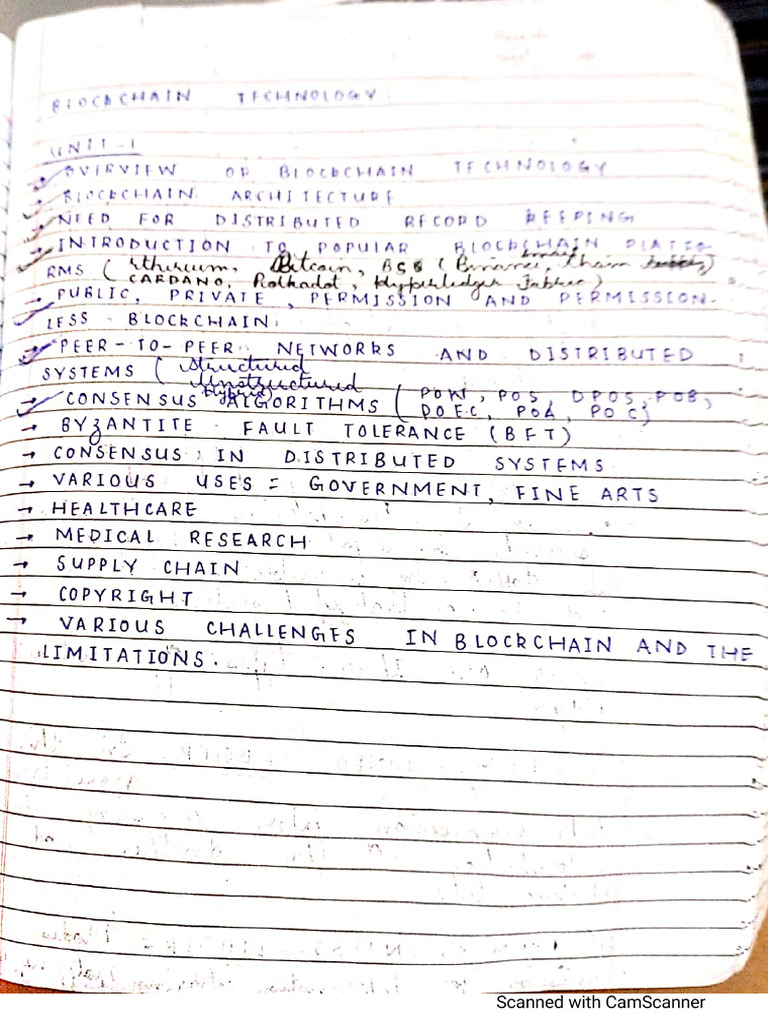 BLOCKCHAIN TECHNOLOGY:
UNIT-1
→ OVERVIEW OF BLOCKCHAIN TECHNOLOGY
→ BLOCKCHAIN ARCHITECTURE
→ NEED FOR DISTRIBUTED RECORD KEEPING
→ INTRODUCTION TO POPULAR BLOCKCHAIN PLATFO-
RMS ( Etherium, Bitcoin, (Binance, Chain )
CARDANO, Polkadot, Hyperledger Fabric)
→ PUBLIC, PRIVATE, PERMISSION AND PERMISSION-
LESS BLOCKCHAIN.
→ PEER-TO-PEER NETWORKS AND DISTRIBUTED
SYSTEMS ( Structured
Unstructured
Hybrid)
→ CONSENSUS ALGORITHMS ( POW, POS, DPOS, POB,
POA, POC)
→ BYZANTITE FAULT TOLERANCE (BFT)
→ CONSENSUS IN DISTRIBUTED SYSTEMS
→ VARIOUS USES = GOVERNMENT, FINE ARTS
→ HEALTHCARE
→ MEDICAL RESEARCH
→ SUPPLY CHAIN
→ COPYRIGHT
→ VARIOUS CHALLENGES IN BLOCKCHAIN AND THE
LIMITATIONS.
Scanned with CamScanner